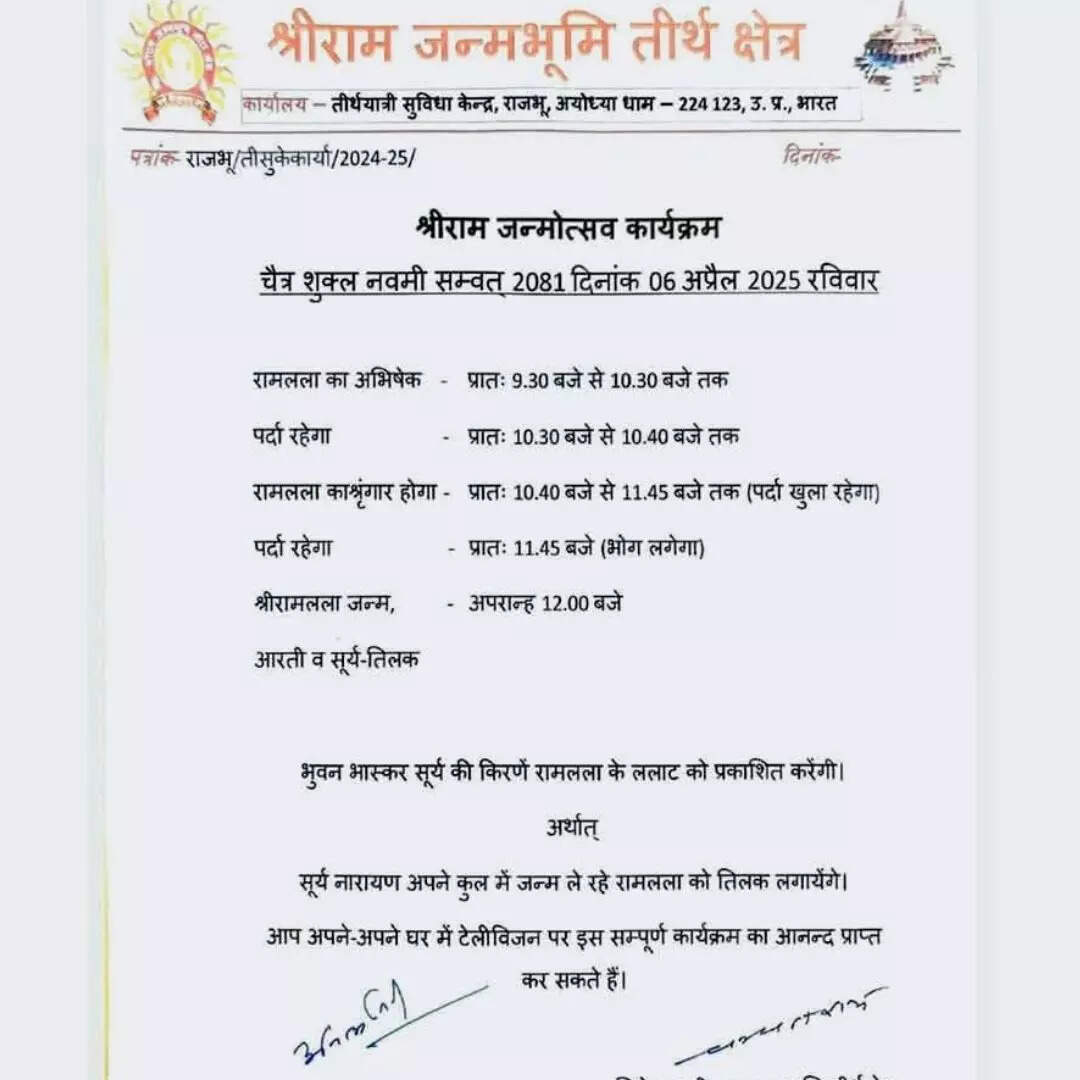 श्रीराम जन्मभूमि तीर्थ क्षेत्र
कार्यालय – तीर्थयात्री सुविधा केन्द्र, राजभू, अयोध्या धाम – 224 123, उ. प्र., भारत
पत्रांक राजभू/तीसुकेकार्या/2024-25/ दिनांक
श्रीराम जन्मोत्सव कार्यक्रम
चैत्र शुक्ल नवमी सम्वत् 2081 दिनांक 06 अप्रैल 2025 रविवार
रामलला का अभिषेक - प्रातः 9.30 बजे से 10.30 बजे तक
पर्दा रहेगा - प्रातः 10.30 बजे से 10.40 बजे तक
रामलला काश्रृंगार होगा - प्रातः 10.40 बजे से 11.45 बजे तक (पर्दा खुला रहेगा)
पर्दा रहेगा - प्रातः 11.45 बजे (भोग लगेगा)
श्रीरामलला जन्म, - अपरान्ह 12.00 बजे
आरती व सूर्य-तिलक
भुवन भास्कर सूर्य की किरणें रामलला के ललाट को प्रकाशित करेंगी।
अर्थात्
सूर्य नारायण अपने कुल में जन्म ले रहे रामलला को तिलक लगायेंगे।
आप अपने-अपने घर में टेलीविजन पर इस सम्पूर्ण कार्यक्रम का आनन्द प्राप्त
कर सकते हैं।